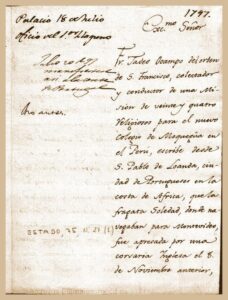 1797.
Palacio 18 de Julio
oficio del 1.er
Exc.mo Señor
Fr. Tadeo Ocampo del orden
de S. Francisco, colectador
y conductor de una Mi-
sion de veinte y quatro
Religiosos para el nuevo
colegio de Moquegua en
el Perú, escribe desde
S. Pablo de Loanda, ciu-
dad de Portugueses en la
costa de Africa, que la
fragata Soledad, donde na-
vegaban para Montevideo,
fue apresada por una
corsaria Inglesa el 8
de Noviembre anterior,
ESTADO 75